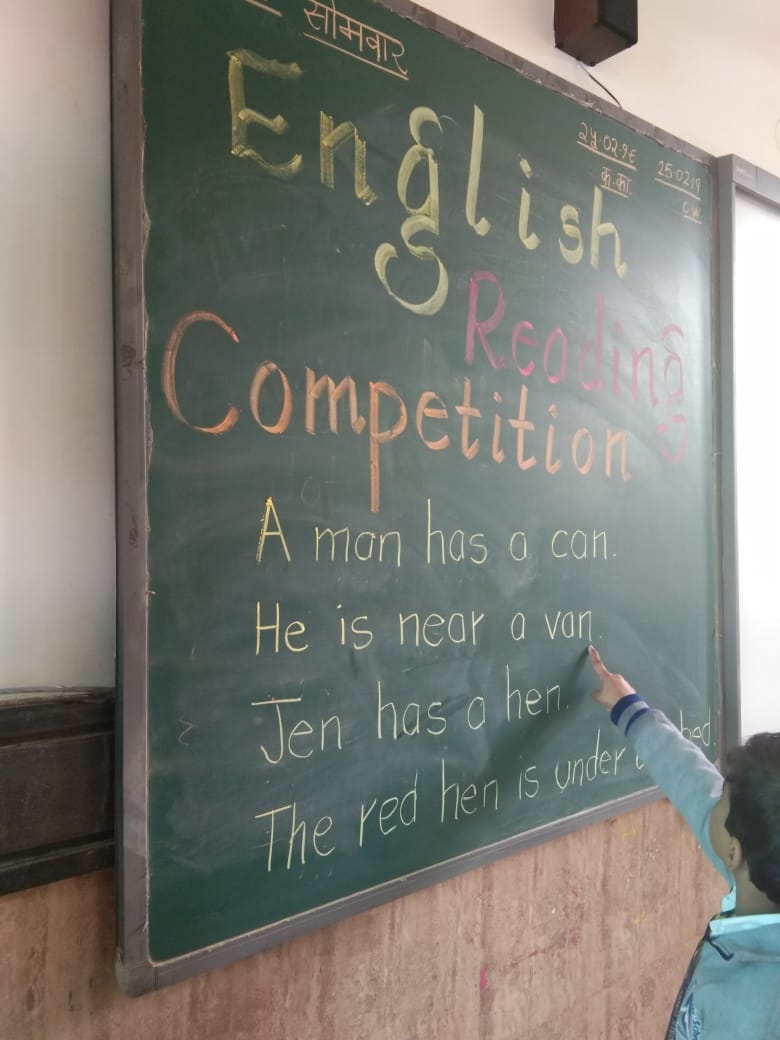 सोमवार
२५.०२.१९
क.का.
25.02.19
C.W.
English
Reading
Competition
A man has a can.
He is near a van.
Jen has a hen.
The red hen is under bed